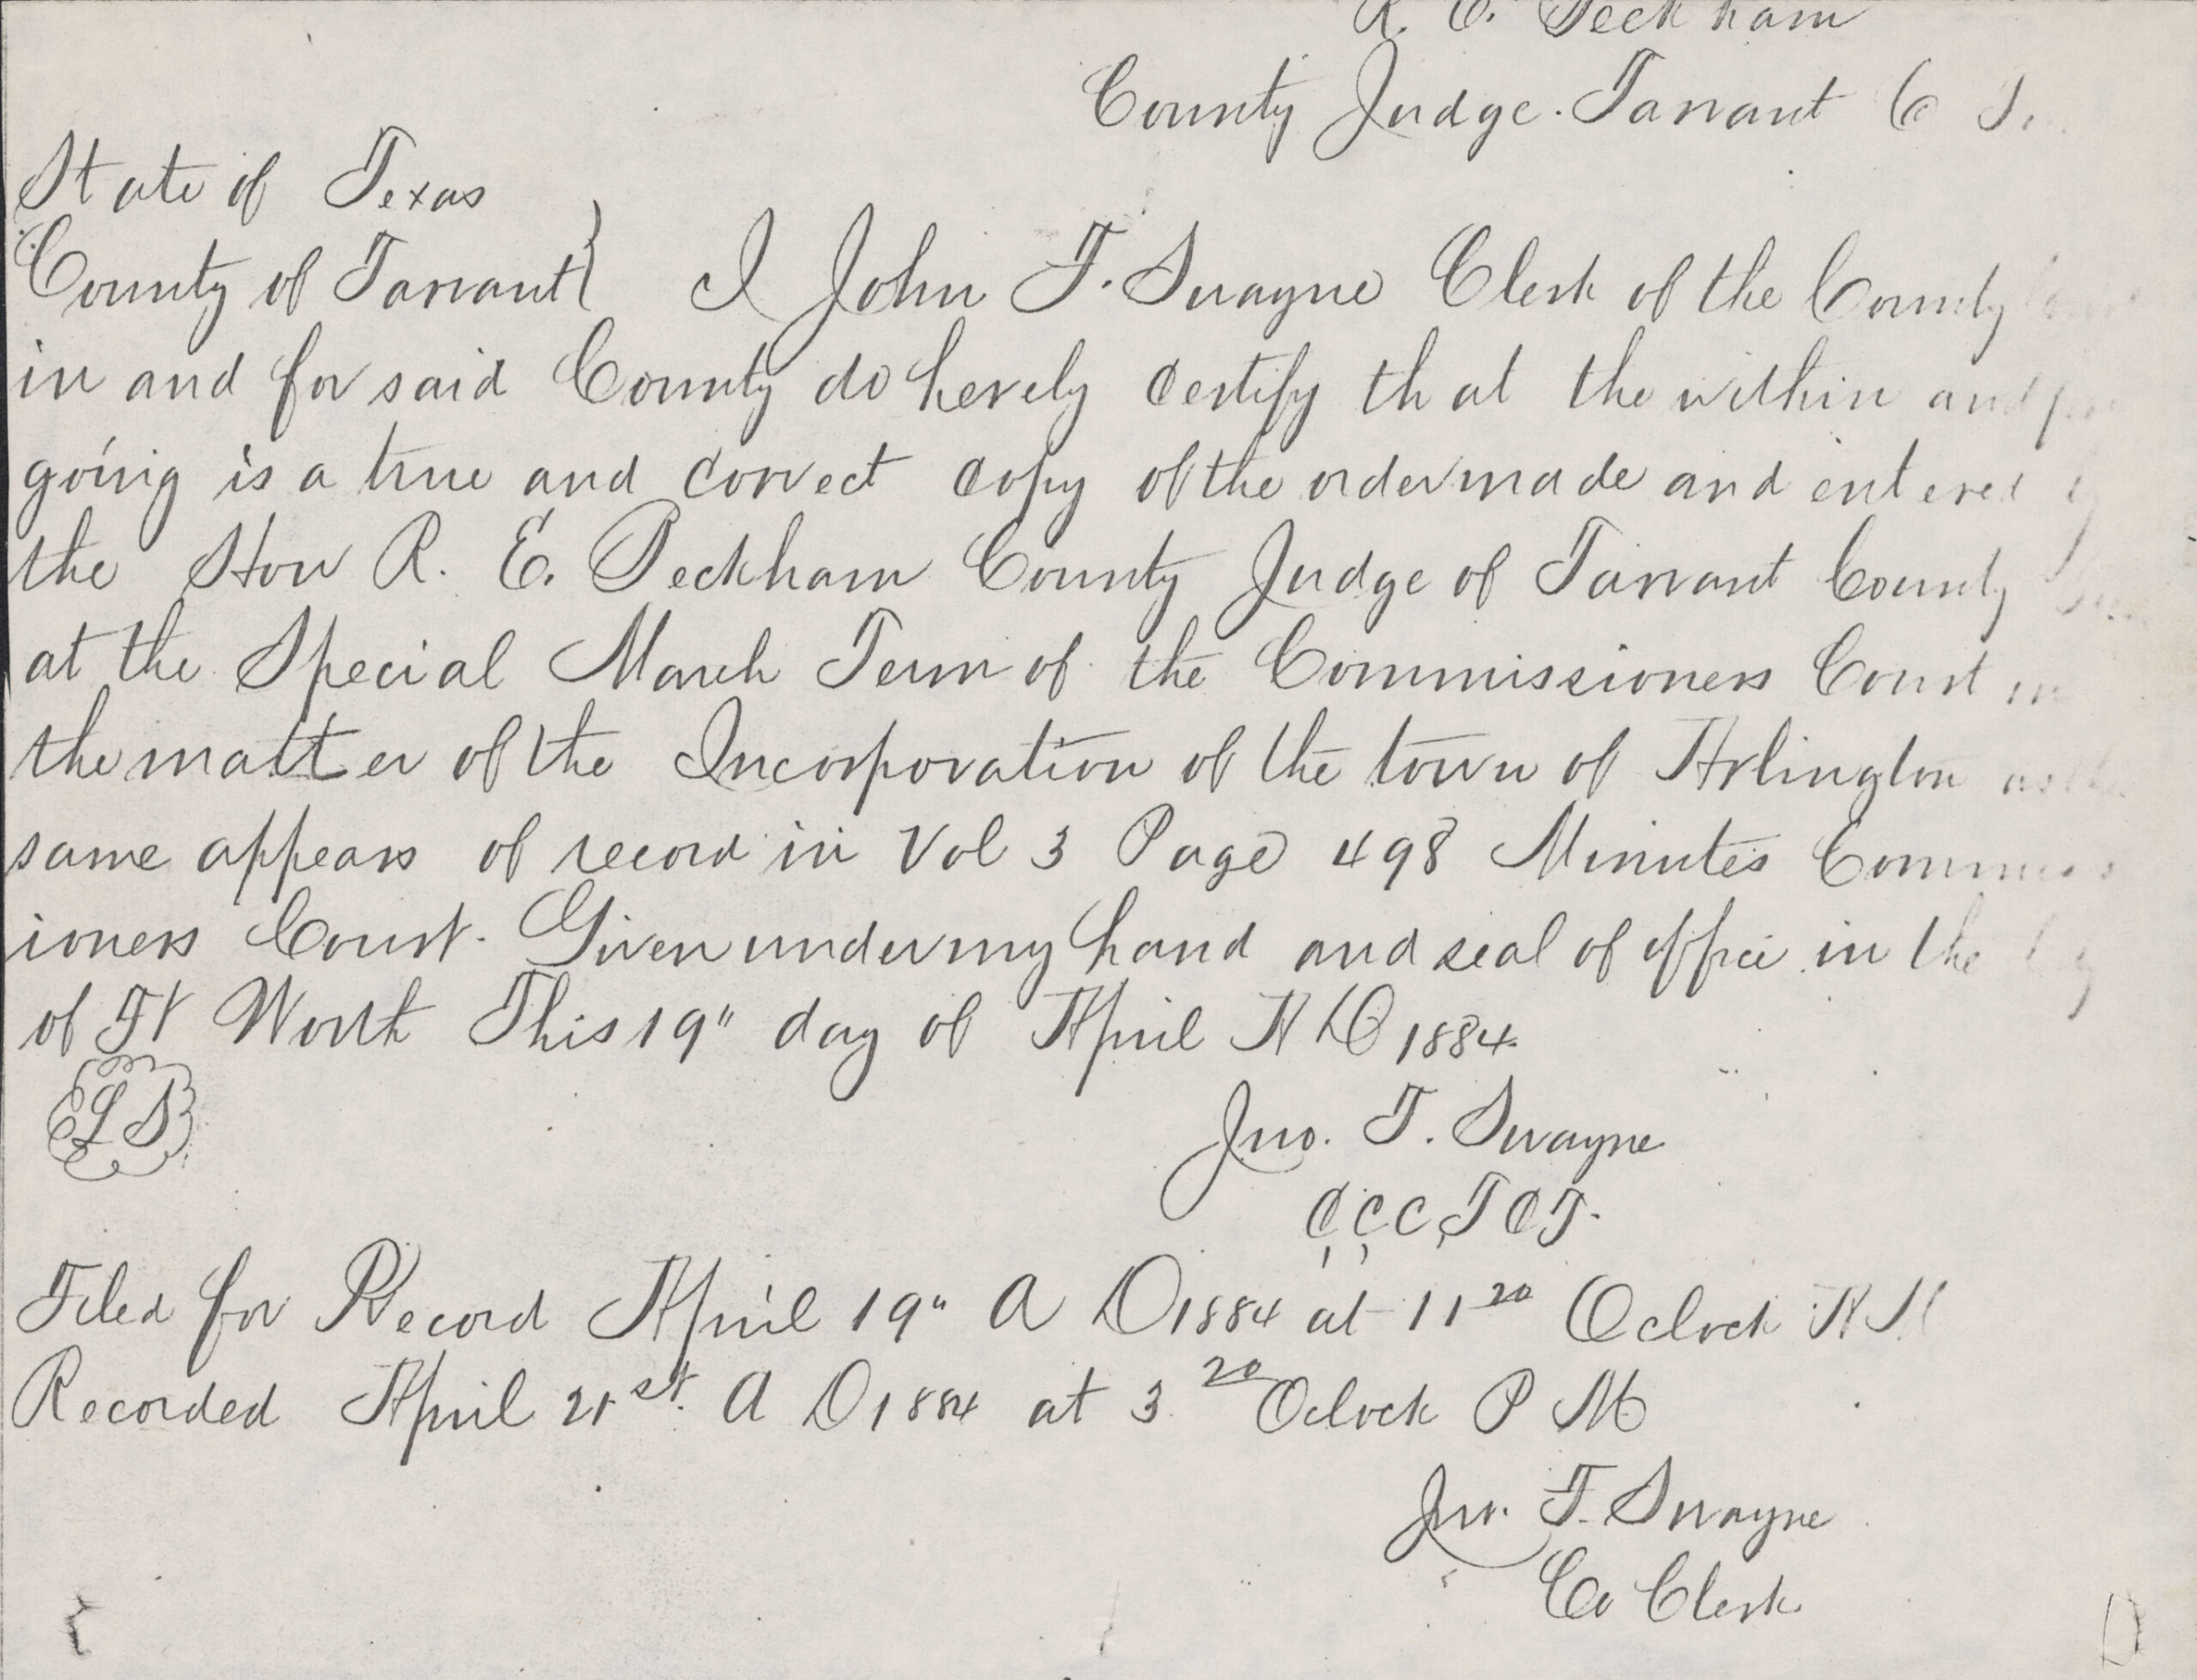 R. E. Peckham
County Judge. Tarrant Co T.
State of Texas
County of Tarrant } I John F. Swayne Clerk of the County
in and for said County do hereby certify that the within and
going is a true and correct copy of the order made and entered
the Hon R. E. Peckham County Judge of Tarrant County
at the Special March Term of the Commissioners Court in
the matter of the Incorporation of the town of Arlington as the
same appears of record in Vol 3 Page 498 Minutes Commiss
ioners Court. Given under my hand and seal of office in the
of Ft Worth This 19" day of April A D 1884.
L S
Jno. F. Swayne
C C C T C T.
Filed for Record April 19" A D 1884 at 11 20 Oclock A M
Recorded April 21st. A D 1884 at 3 20 Oclock P M
Jno. F. Swayne
Co Clerk